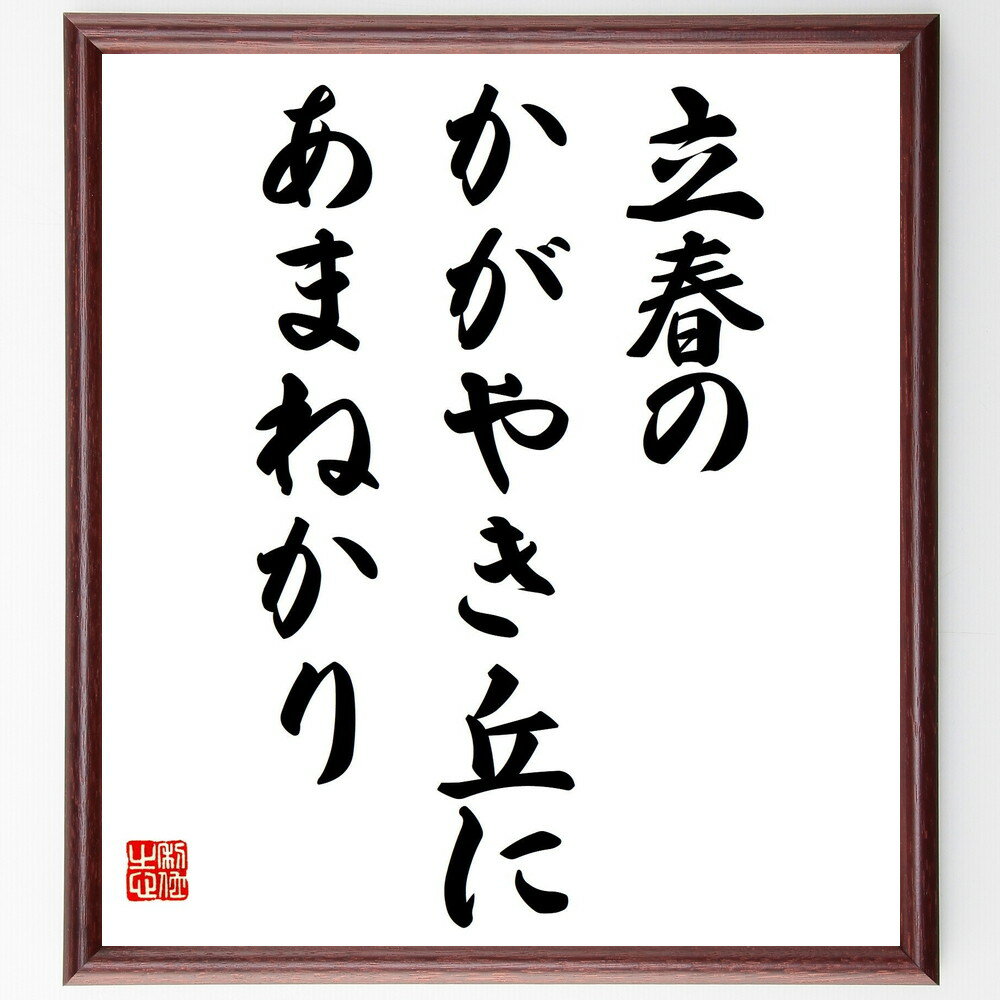 立春の
かがやき丘に
あまねかり